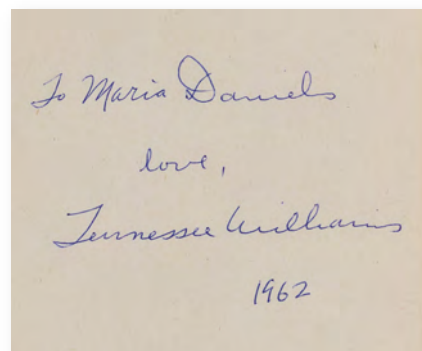 To Maria Daniels
love,
Tennessee Williams
1962